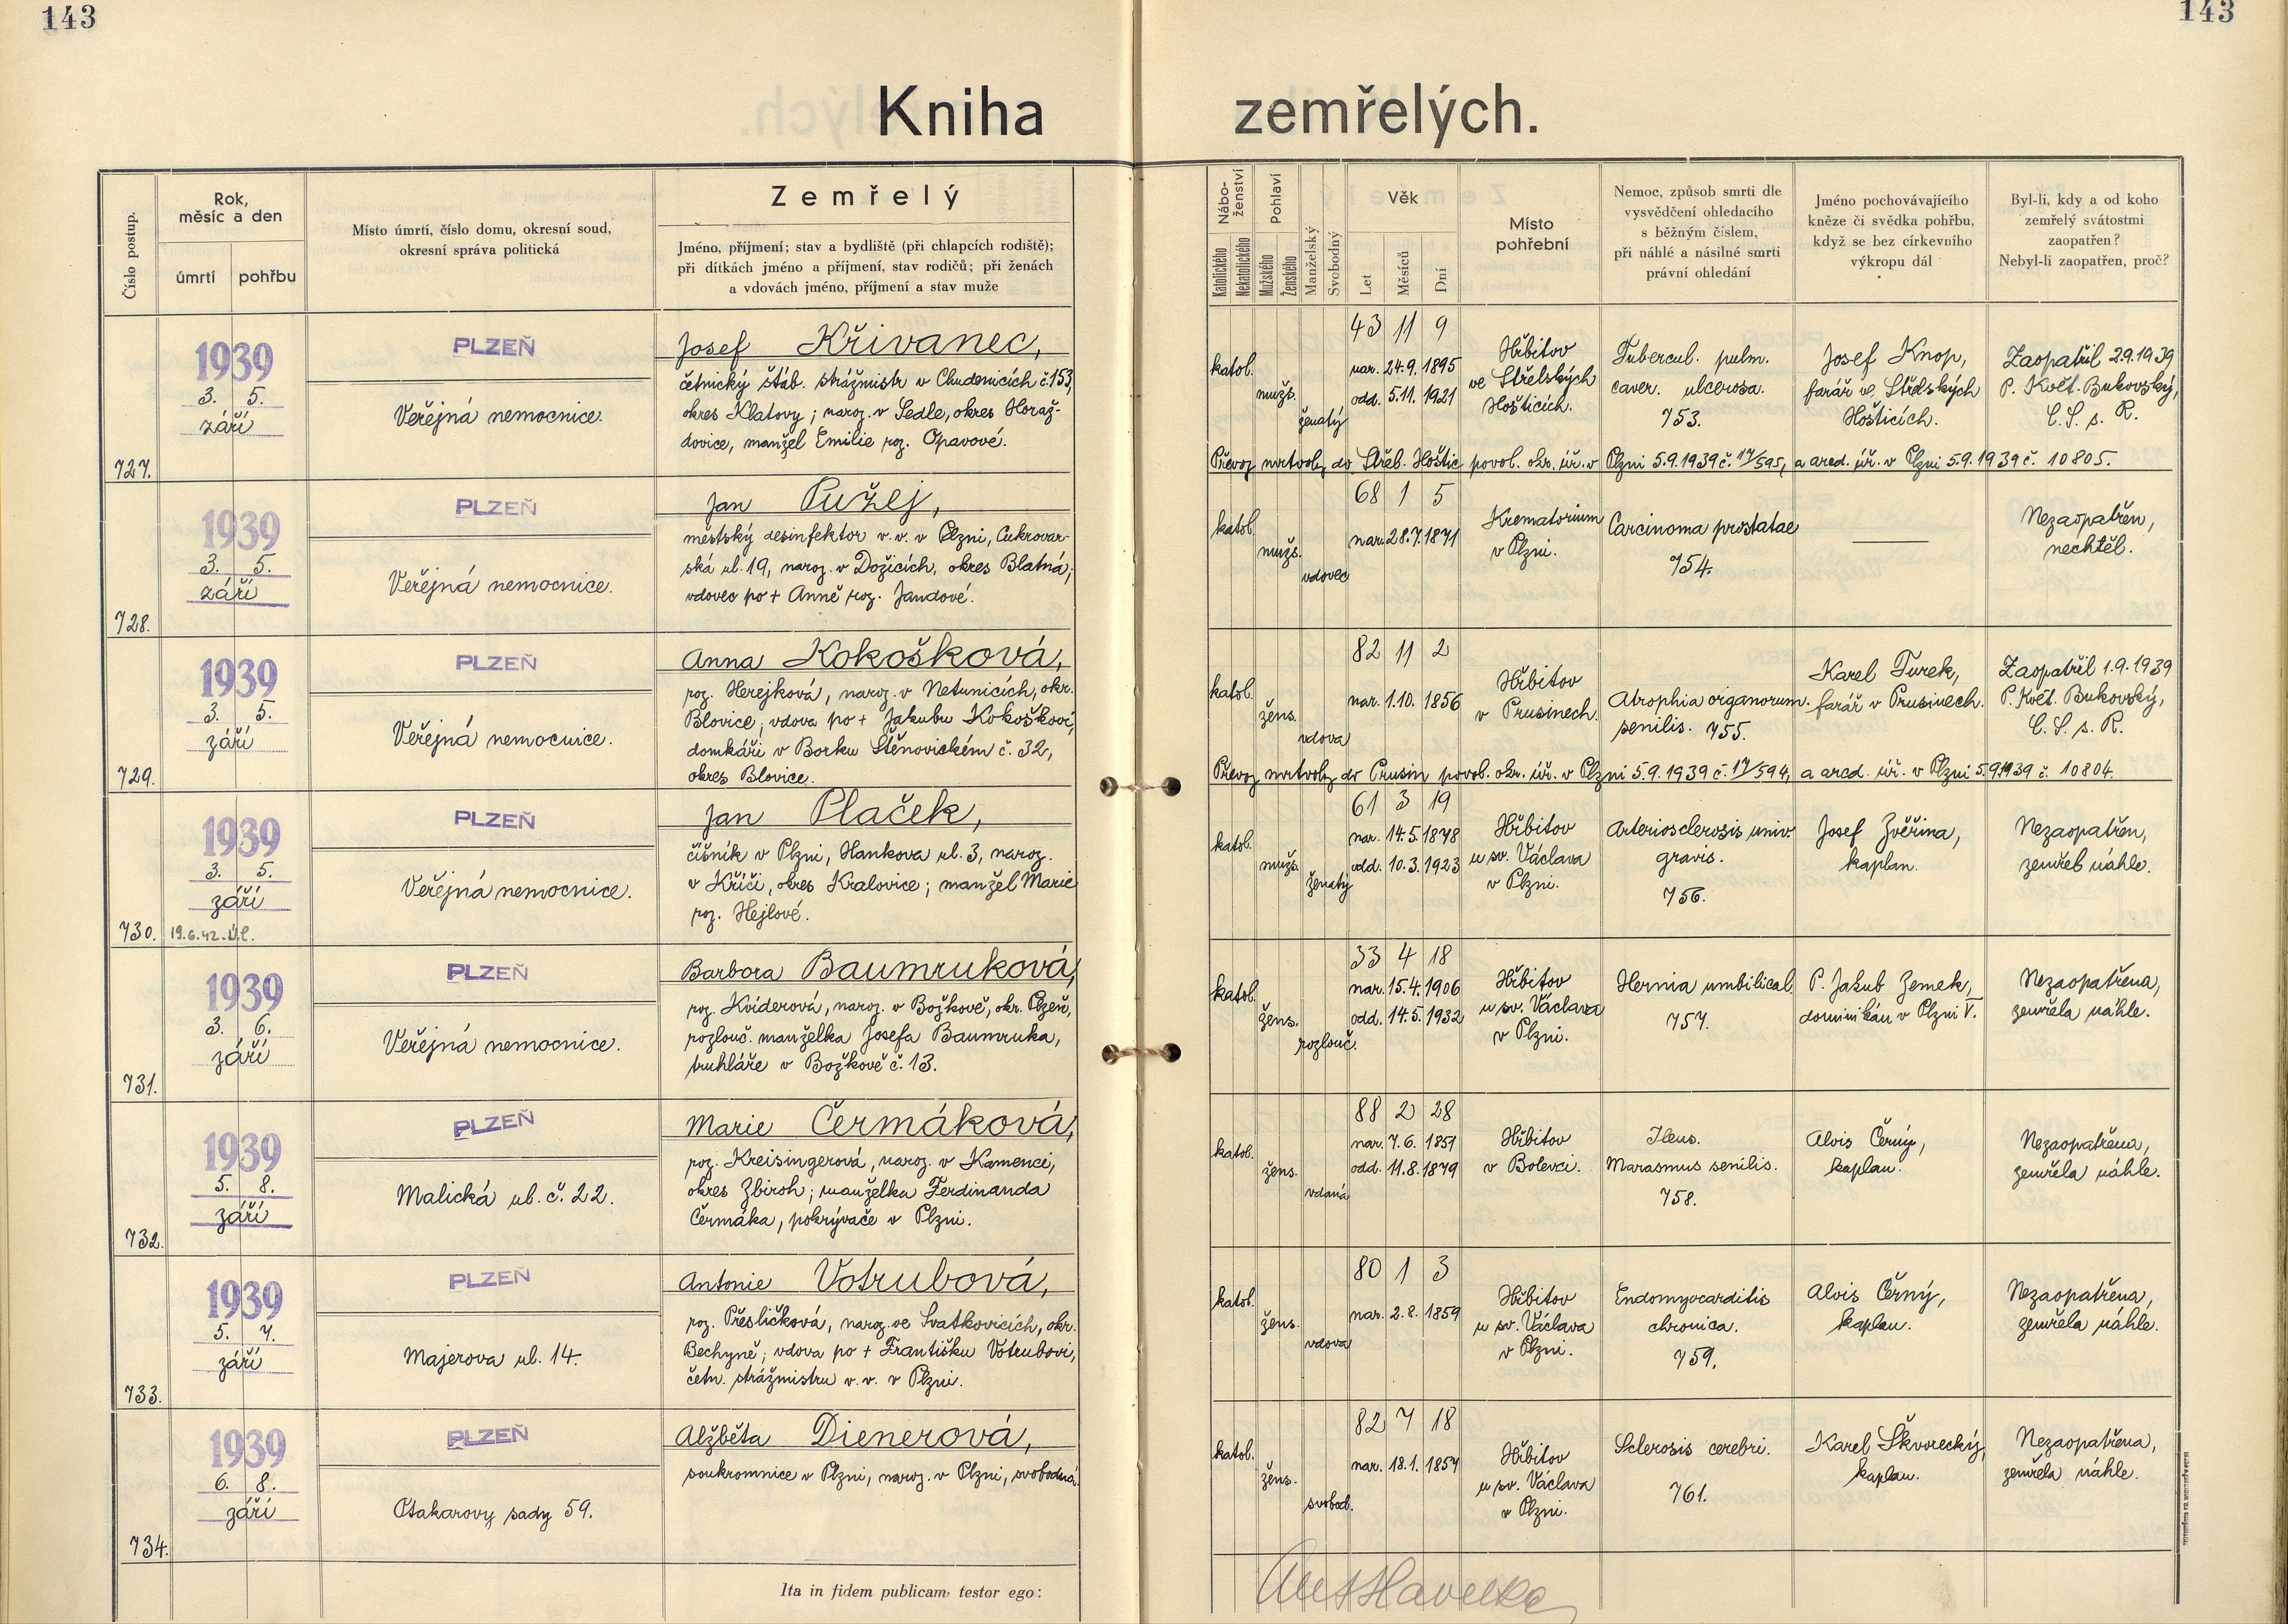 143
143
Kniha zemřelých.
Číslo postup.
Rok, měsíc a den
úmrtí
pohřbu
Místo úmrtí, číslo domu, okresní soud,
okresní správa politická
Zemřelý
Jméno, příjmení; stav a bydliště (při chlapcích rodiště);
při dítkách jméno a příjmení, stav rodičů; při ženách
a vdovách jméno, příjmení a stav muže
Nábo-
ženství
Katolického
Nekatolického
Pohlaví
Mužského
Ženského
Manželský
Svobodný
Věk
Let
Měsíců
Dní
Místo
pohřební
Nemoc, způsob smrti dle
vysvědčení ohledacího
s běžným číslem,
při náhlé a násilné smrti
právní ohledání
Jméno pochovávajícího
kněze či svědka pohřbu,
když se bez církevního
výkropu dál
Byl-li, kdy a od koho
zemřelý svátostmi
zaopatřen?
Nebyl-li zaopatřen, proč?
727.
1939
3. 5.
září
PLZEŇ
Veřejná nemocnice.
Josef Křivanec,
četnický štáb. strážmistr v Chudenicích č.153,
okres Klatovy; naroz. v Sedle, okres Horaž-
dovice, manžel Emilie roz. Opavové.
katol.
mužs.
ženatý
43 11 9
nar. 24.9. 1895
odd. 5.11. 1921
Hřbitov
ve Střelských
Hošticích.
Tubercul. pulm.
caver. ulcerosa.
753.
Josef Knop,
farář ve Střelských
Hošticích.
Zaopatřil 2.9.1939
P. Květ. Bukovský,
C. S. s. R.
Převoz mrtvoly do Střel. Hoštic povol. okr. úř. v Plzni 5.9.1939 č. 17/595, a arcd. úř. v Plzni 5.9.1939 č. 10805.
728.
1939
3. 5.
září
PLZEŇ
Veřejná nemocnice.
Jan Pužej,
městský desinfektor v.v. v Plzni, Cukrovar-
ská ul. 19, naroz. v Dožicích, okres Blatná;
vdovec po + Anně roz. Jandové.
katol.
mužs.
vdovec
68 1 5
nar. 28.7.1871
Krematorium
v Plzni.
Carcinoma prostatae
754.
Nezaopatřen,
nechtěl.
729.
1939
3. 5.
září
PLZEŇ
Veřejná nemocnice.
Anna Kokošková,
roz. Herejková, naroz. v Netunicích, okr.
Blovice; vdova po + Jakubu Kokoškovi,
domkáři v Borku Štěnovickém č. 32,
okres Blovice.
katol.
žens.
vdova
82 11 2
nar. 1.10. 1856
Hřbitov
v Prusinech.
Atrophia organorum
senilis. 755.
Karel Turek,
farář v Prusinech.
Zaopatřil 1.9.1939
P. Květ. Bukovský,
C. S. s. R.
Převoz mrtvoly do Prusin povol. okr. úř. v Plzni 5.9.1939 č. 17/594, a arcd. úř. v Plzni 5.9.1939 č. 10804.
730.
1939
3. 5.
září
19.6.42.
PLZEŇ
Veřejná nemocnice.
Jan Plaček,
číšník v Plzni, Hankova ul. 3, naroz.
v Kříči, okres Kralovice; manžel Marie
roz. Hejlové.
katol.
mužs.
ženatý
61 3 19
nar. 14.5.1878
odd. 10.3.1923
Hřbitov
u sv. Václava
v Plzni.
Arteriosclerosis univ.
gravis.
756.
Josef Zvěřina,
kaplan.
Nezaopatřen,
zemřel náhle.
731.
1939
3. 6.
září
PLZEŇ
Veřejná nemocnice.
Barbora Baumruková,
roz. Kviderová, naroz. v Božkově, okr. Plzeň,
rozlouč. manželka Josefa Baumruka,
truhláře v Božkově č. 13.
katol.
žens.
rozlouč.
33 4 18
nar. 15.4.1906
odd. 14.5.1932
Hřbitov
u sv. Václava
v Plzni.
Hernia umbilical.
757.
P. Jakub Zemek,
dominikán v Plzni V.
Nezaopatřena,
zemřela náhle.
732.
1939
5. 8.
září
PLZEŇ
Malická ul. č. 22.
Marie Čermáková,
roz. Kreisingerová, naroz. v Kamenci,
okres Zbiroh; manželka Ferdinanda
Čermáka, pokrývače v Plzni.
katol.
žens.
vdaná
88 2 28
nar. 7.6. 1851
odd. 11.8.1879
Hřbitov
v Bolevci.
Ileus.
Marasmus senilis.
758.
Alois Černý,
kaplan.
Nezaopatřena,
zemřela náhle.
733.
1939
5. 7.
září
PLZEŇ
Majerova ul. 14.
Antonie Votrubová,
roz. Přesličková, naroz. ve Svatkovicích, okr.
Bechyně; vdova po + Františku Votrubovi,
četn. strážmistru v.v. v Plzni.
katol.
žens.
vdova
80 1 3
nar. 2.8. 1859
Hřbitov
u sv. Václava
v Plzni.
Endomyocarditis
chronica.
759.
Alois Černý,
kaplan.
Nezaopatřena,
zemřela náhle.
734.
1939
6. 8.
září
PLZEŇ
Otakarovy sady 59.
Alžběta Dienerová,
soukromnice v Plzni, naroz. v Plzni, svobodná.
katol.
žens.
svobod.
82 7 18
nar. 18.1. 1857
Hřbitov
u sv. Václava
v Plzni.
Sclerosis cerebri.
761.
Karel Škvorecký,
kaplan.
Nezaopatřena,
zemřela náhle.
Ita in fidem publicam testor ego:
Ant Havelka